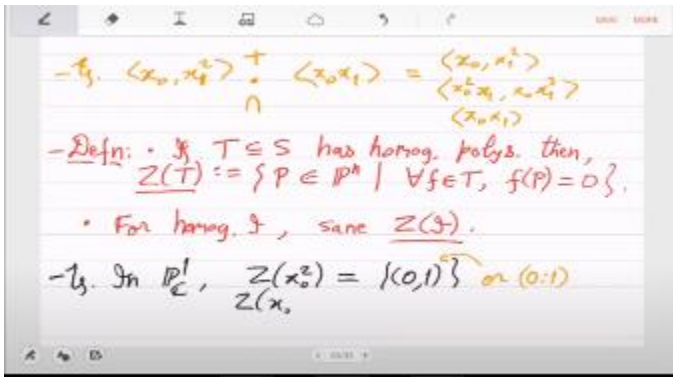 - Eg. ⟨x₀, x₁²⟩ + · ∩ ⟨x₀x₁⟩ = ⟨x₀, x₁²⟩
⟨x₀²x₁, x₀x₁³⟩
⟨x₀x₁⟩
- Defn: · If T ⊆ S has homog. polys. then,
Z(T) := { P ∈ ℙⁿ | ∀f∈T, f(P) = 0 }.
· For homog. I, same Z(I).
- Eg. In ℙ¹_ℂ, Z(x₀²) = {(0,1)} or (0:1)
Z(x₀